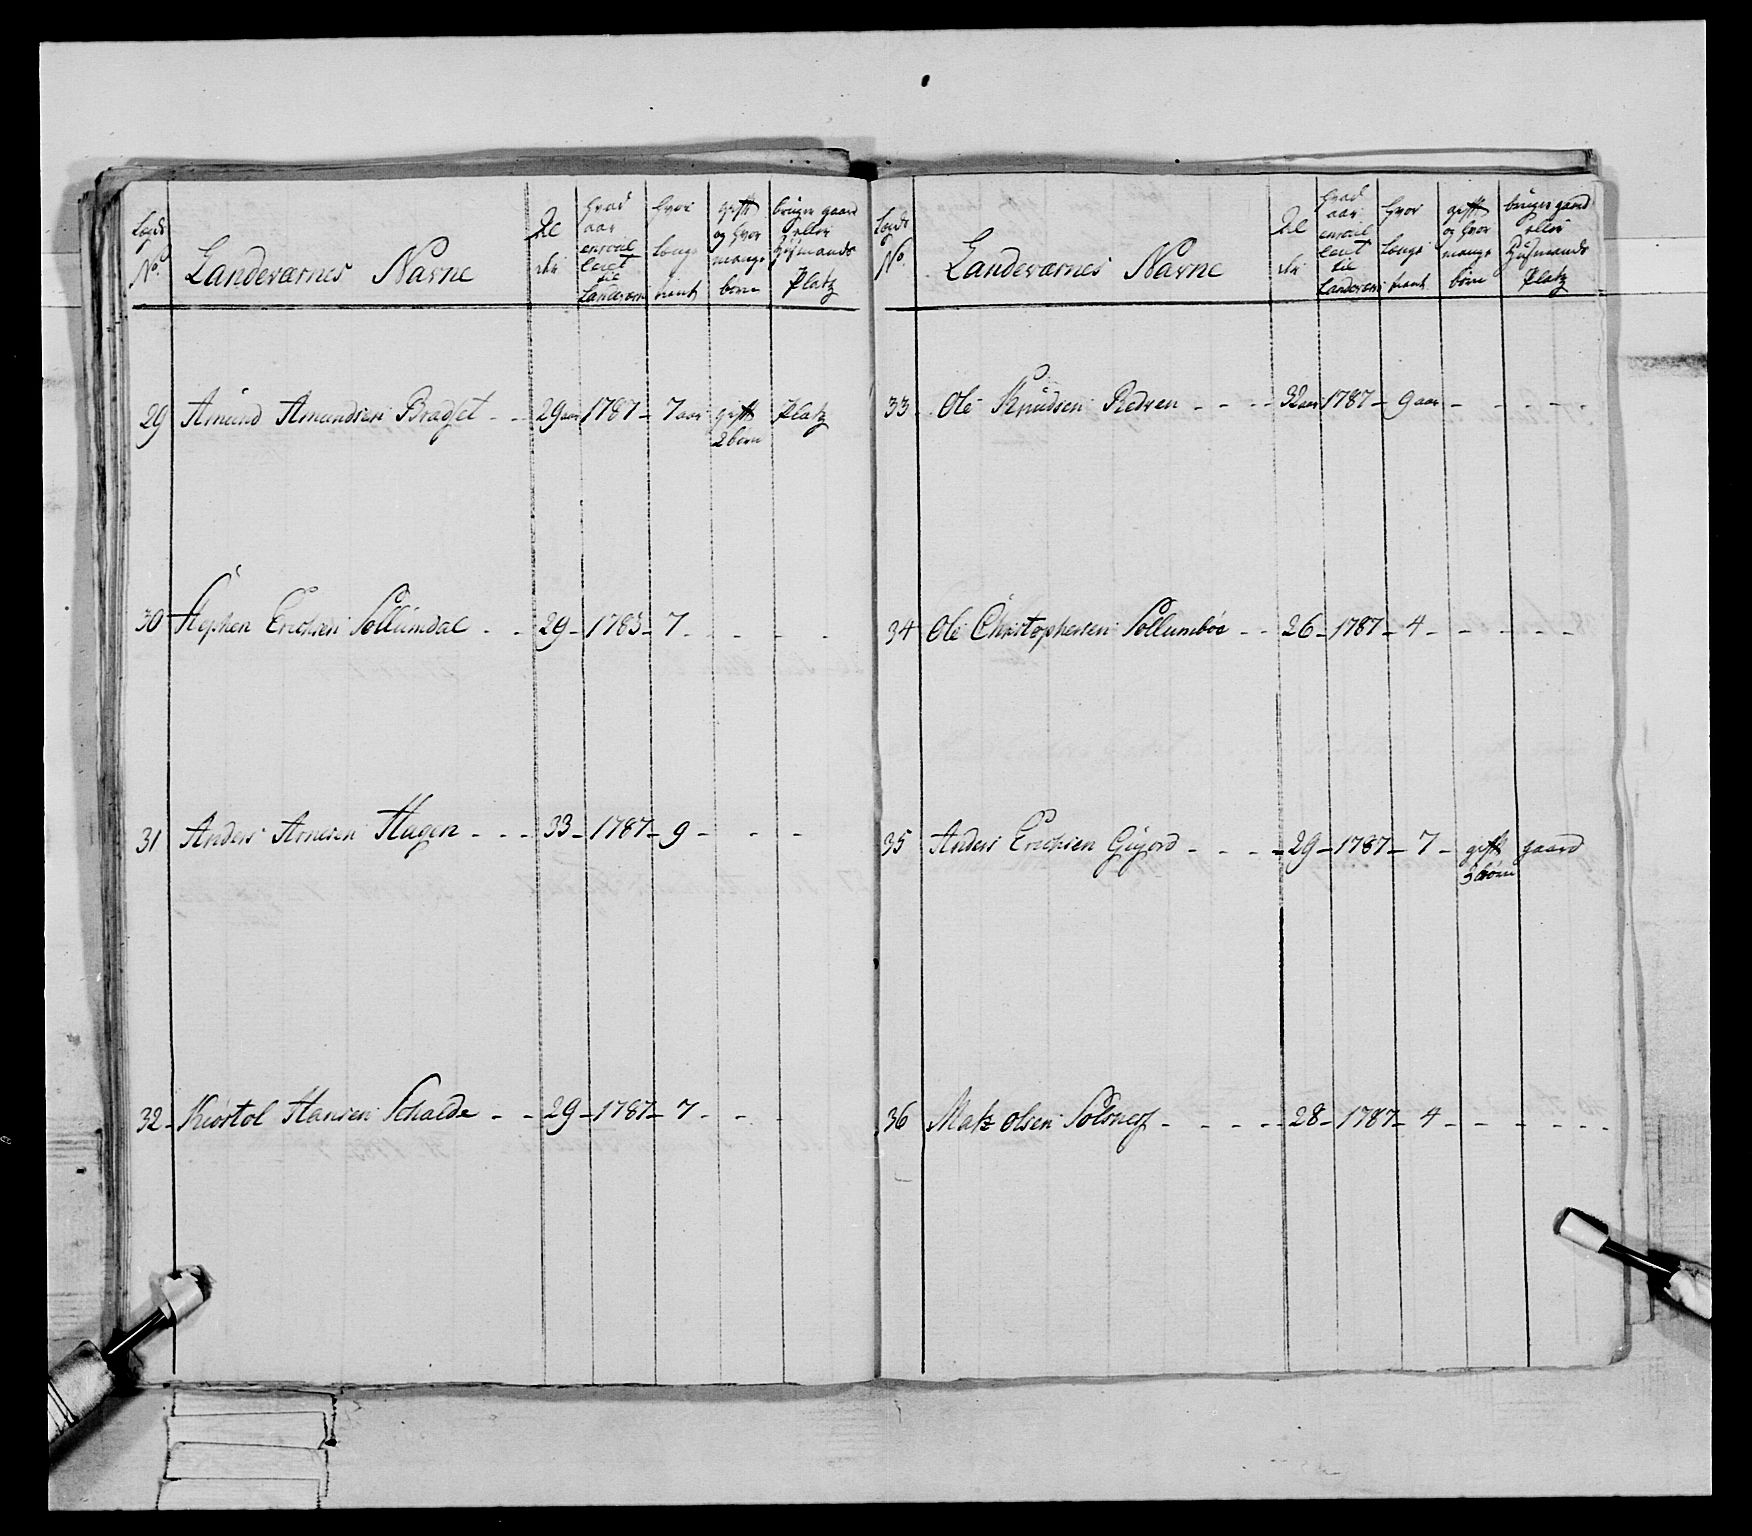 Lægds No. Landeværnes Navne Al der hvad aar enroulleret til Landeværn hvor længe tient gift og hvor mange børn bruger gaard eller Huusmands Platz
29 Amund Amundsen Bradset - - 29 aar 1787 - 7 aar gift Platz
2 børn
30 Stephen Erichsen Sollumdal - - 29 - 1783 - 7 - - - -
31 Anders Arnesen Hagen - - - 33 - 1787 - 9 - - -
32 - Kiøstol Hansen Schalde - - 29 - 1787 - 7 - - -
Lægds No. Landeværnes Navne Al der hvad aar til Landeværn hvor længe tient gift og hvor mange børn bruger gaard eller Huusmands Platz
33 Ole Knudsen Redsen - - - - 32 aar 1787 - 9 aar - - - -
34 Ole Christophersen Sollumböe - - 26 - 1787 - 4 - - - - -
35 Anders Erichsen - - - - 29 - 1787 - 7 - gift gaard
3 børn
36 Matz Olsen - - - - - 28 - 1787 - 4 - - - - - -